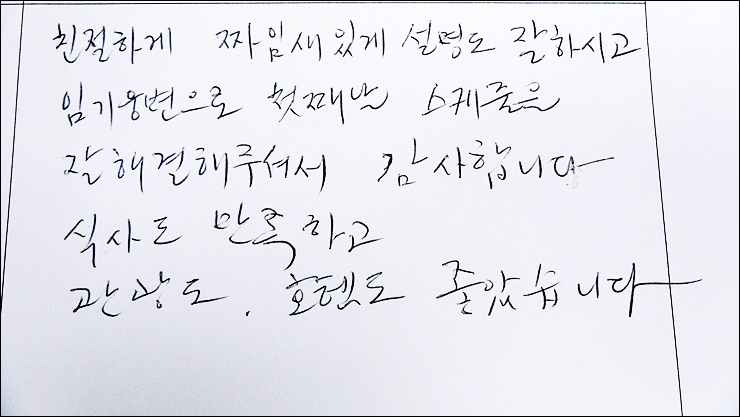 친절하게 짜임새있게 설명도 잘하시고
임기응변으로 첫째날 스케줄을
잘해결해주셔서 감사합니다
식사도 만족하고
관광도, 호텔도 좋았습니다